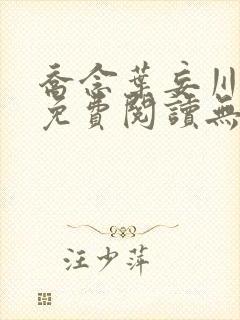 喬念葉妄川
免費閱讀無
汪少萍